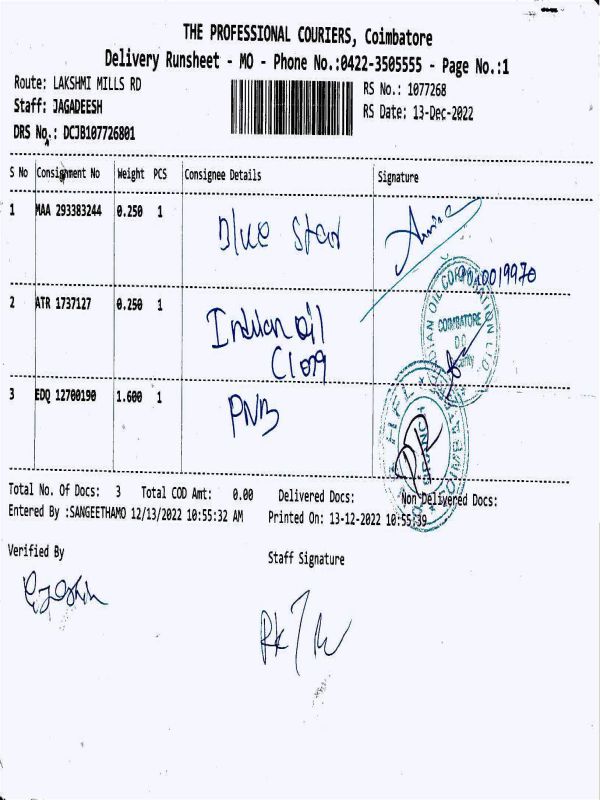 THE PROFESSIONAL COURIERS, Coimbatore
Delivery Runsheet - MO - Phone No.:0422-3505555 - Page No.:1
Route: LAKSHMI MILLS RD
RS No.: 1077268
Staff: JAGADEESH
RS Date: 13-Dec-2022
DRS No.: DCJB107726801
S No Consignment No Weight PCS Consignee Details Signature
1 MAA 293383244 0.250 1 Blue Star
2 ATR 1737127 0.250 1 Indian oil
COIMBATORE
3 EDQ 12700190 1.600 1 PNB
HFL
BRANCH
Total No. Of Docs: 3 Total COD Amt: 0.00 Delivered Docs: Non Delivered Docs:
Entered By :SANGEETHAMO 12/13/2022 10:55:32 AM Printed On: 13-12-2022 10:55:39
Verified By
Staff Signature